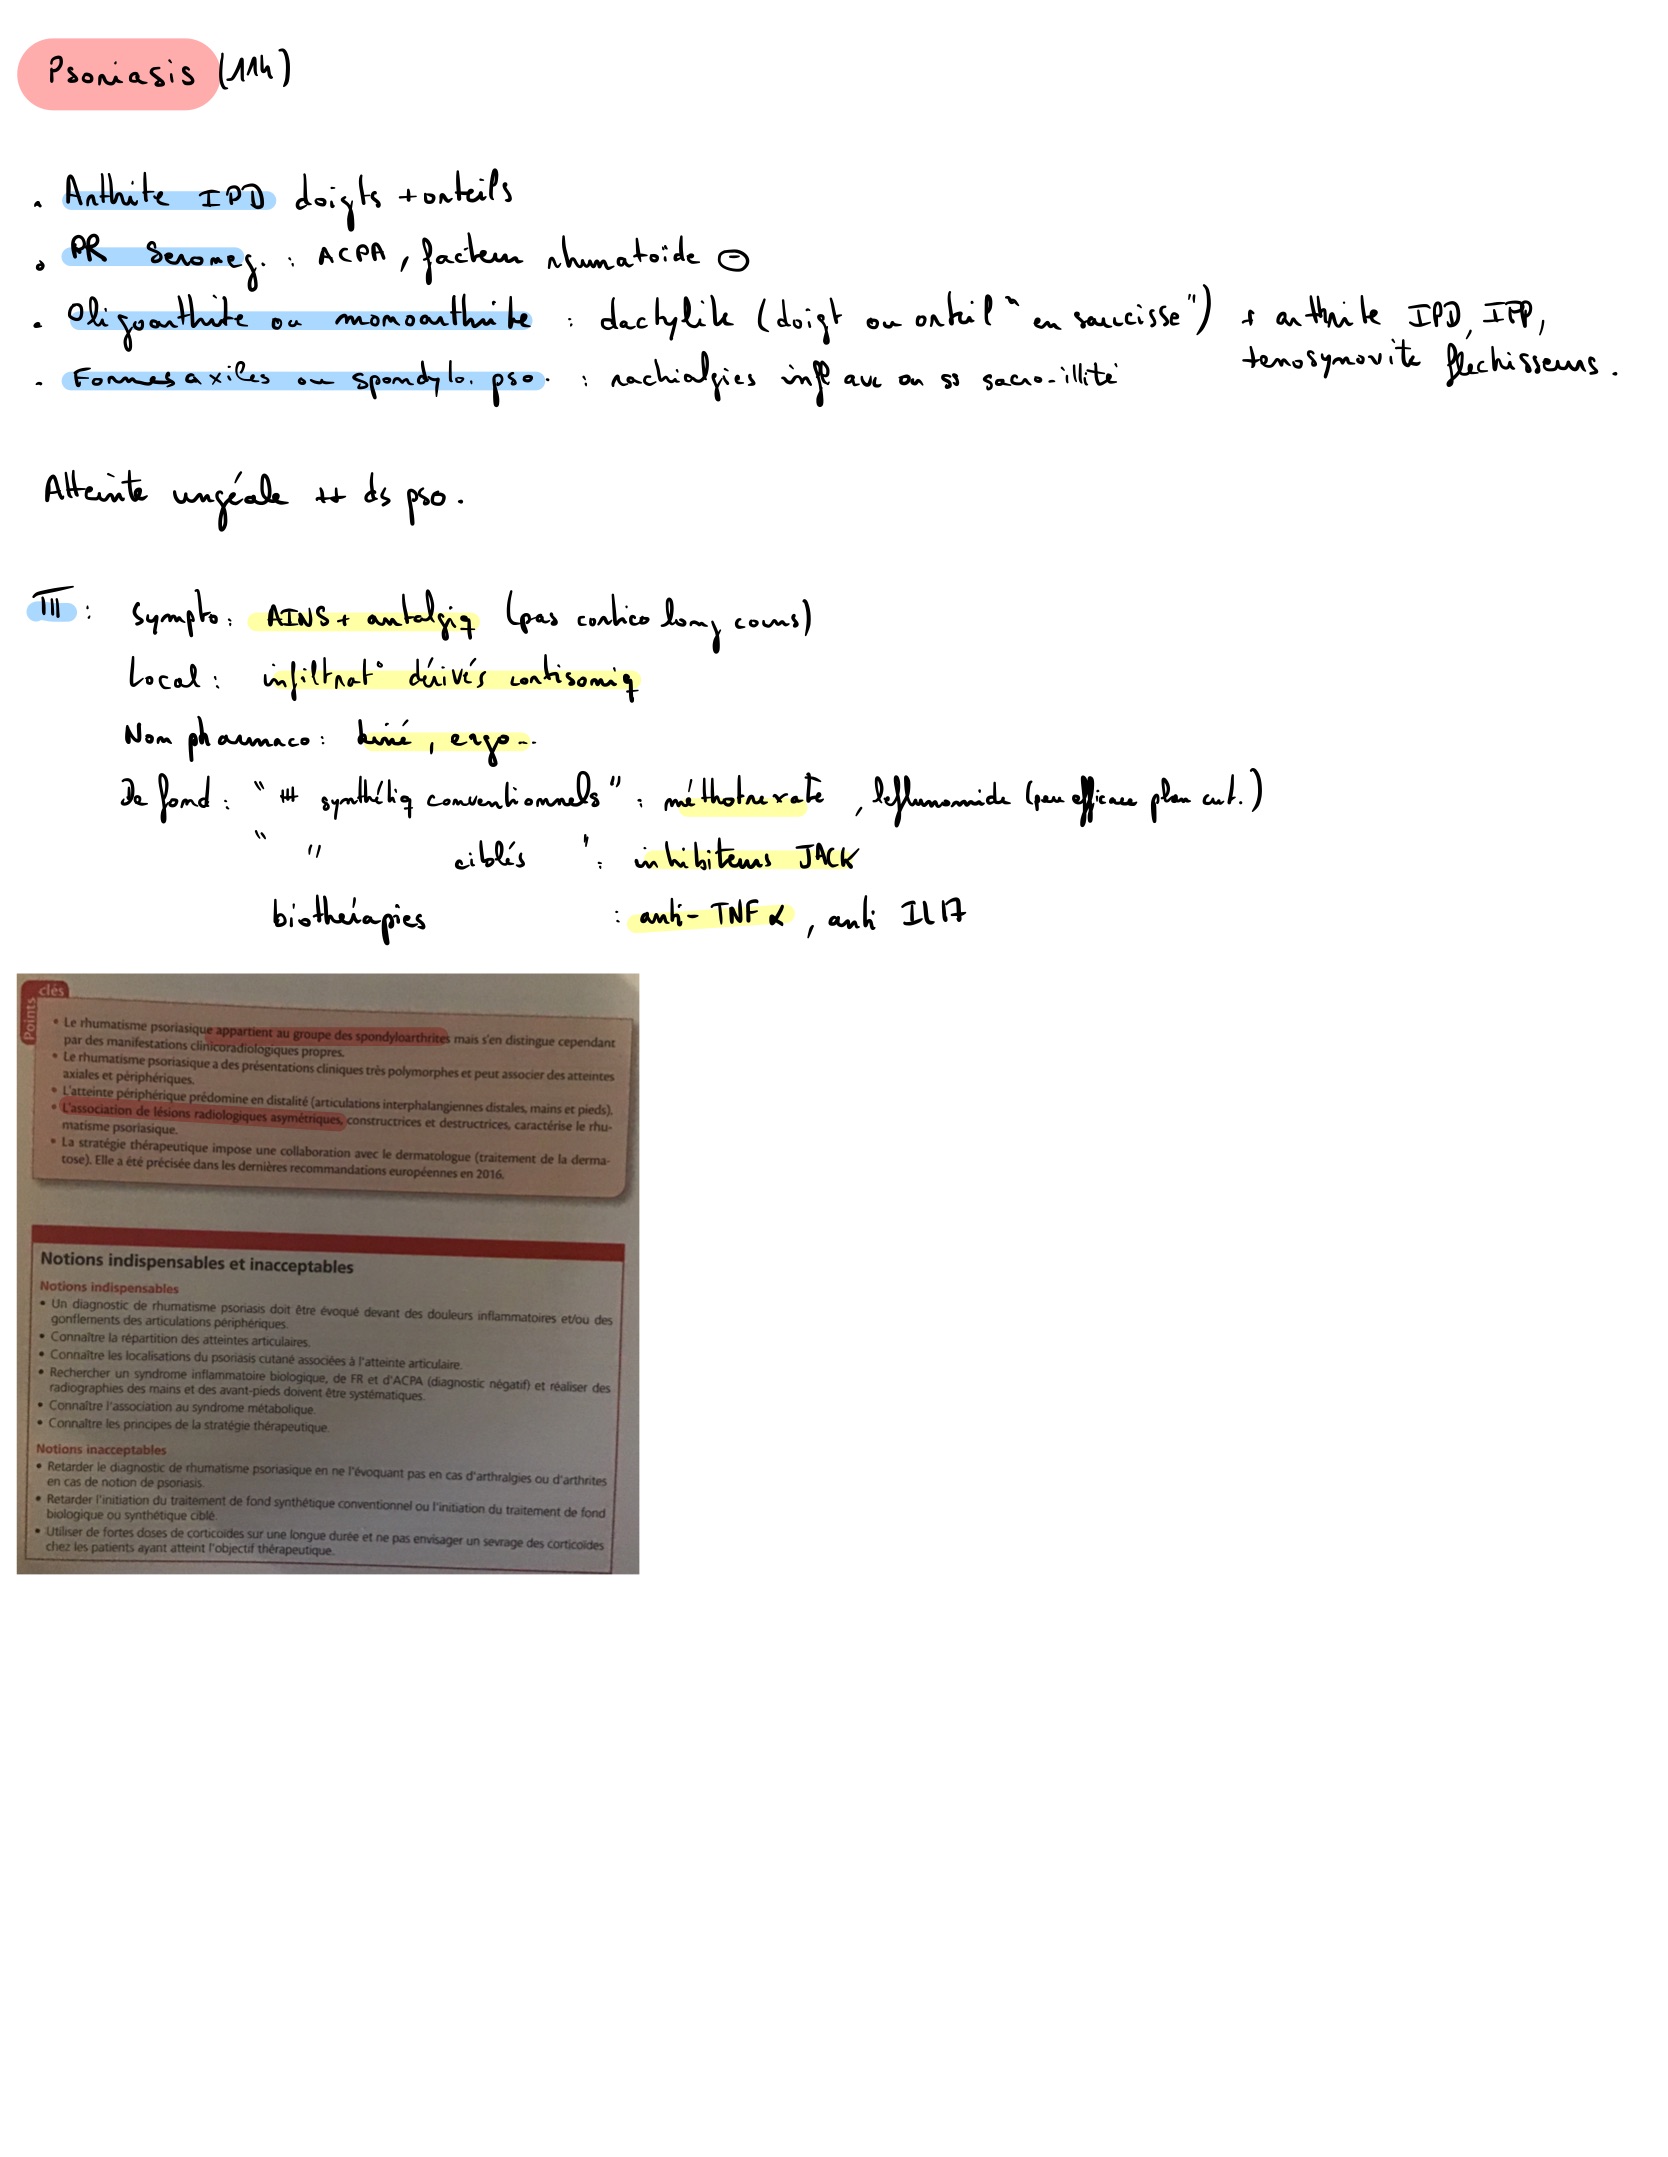 Psoriasis (114)
• Arthite IPD doigts + orteils
• PR Seroneg. : ACPA, facteur rhumatoïde ⊖
• Oligoarthite ou monoarthrite : dactylite (doigt ou orteil "en saucisse") + arthrite IPD, IPP,
tenosynovite fléchisseurs.
- Formes axiles ou spondylo. pso. : rachialgies infl avc ou ss sacro-illite
Atteinte ungéale ++ ds pso.
TTT : Sympto : AINS + antalgiq (pas cortico long cours)
Local : infiltrat° dérivés cortisoniq
Non pharmaco : kiné, ergo..
De fond : " ttt synthétiq conventionnels " : méthotrexate, leflunomide (peu efficace plan cut.)
" " ciblés " : inhibiteurs JACK
biothérapies : anti-TNF α, anti IL17
Points clés
• Le rhumatisme psoriasique appartient au groupe des spondyloarthrites mais s'en distingue cependant
par des manifestations clinicoradiologiques propres.
• Le rhumatisme psoriasique a des présentations cliniques très polymorphes et peut associer des atteintes
axiales et périphériques.
• L'atteinte périphérique prédomine en distalité (articulations interphalangiennes distales, mains et pieds).
• L'association de lésions radiologiques asymétriques, constructrices et destructrices, caractérise le rhu-
matisme psoriasique.
• La stratégie thérapeutique impose une collaboration avec le dermatologue (traitement de la derma-
tose). Elle a été précisée dans les dernières recommandations européennes en 2016.
Notions indispensables et inacceptables
Notions indispensables
• Un diagnostic de rhumatisme psoriasis doit être évoqué devant des douleurs inflammatoires et/ou des
gonflements des articulations périphériques.
• Connaître la répartition des atteintes articulaires.
• Connaître les localisations du psoriasis cutané associées à l'atteinte articulaire.
• Rechercher un syndrome inflammatoire biologique, de FR et d'ACPA (diagnostic négatif) et réaliser des
radiographies des mains et des avant-pieds doivent être systématiques.
• Connaître l'association au syndrome métabolique.
• Connaître les principes de la stratégie thérapeutique.
Notions inacceptables
• Retarder le diagnostic de rhumatisme psoriasique en ne l'évoquant pas en cas d'arthralgies ou d'arthrites
en cas de notion de psoriasis.
• Retarder l'initiation du traitement de fond synthétique conventionnel ou l'initiation du traitement de fond
biologique ou synthétique ciblé.
• Utiliser de fortes doses de corticoïdes sur une longue durée et ne pas envisager un sevrage des corticoïdes
chez les patients ayant atteint l'objectif thérapeutique.